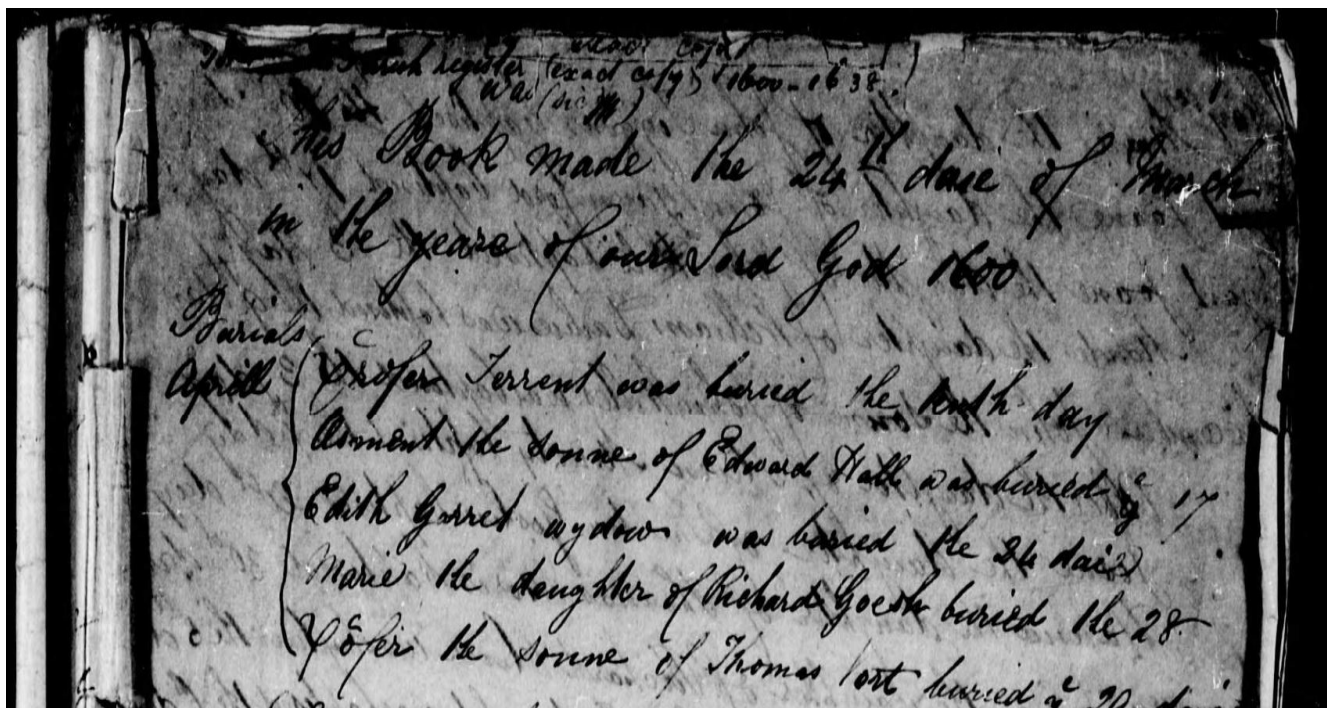 exact copy
Parish register (exact copy) 1600-1638.
(sic)
This Book made the 24th daie of March
in the yeare of our Lord God 1600
Burials
Aprill
Xrôfer Terrent was buried the tenth day
Osment the sonne of Edward Hall was buried ye 17
Edith Garret wydow was buried the 24 daie
Marie the daughter of Richard Goesh buried the 28
Xrôfer the sonne of Thomas buried ye